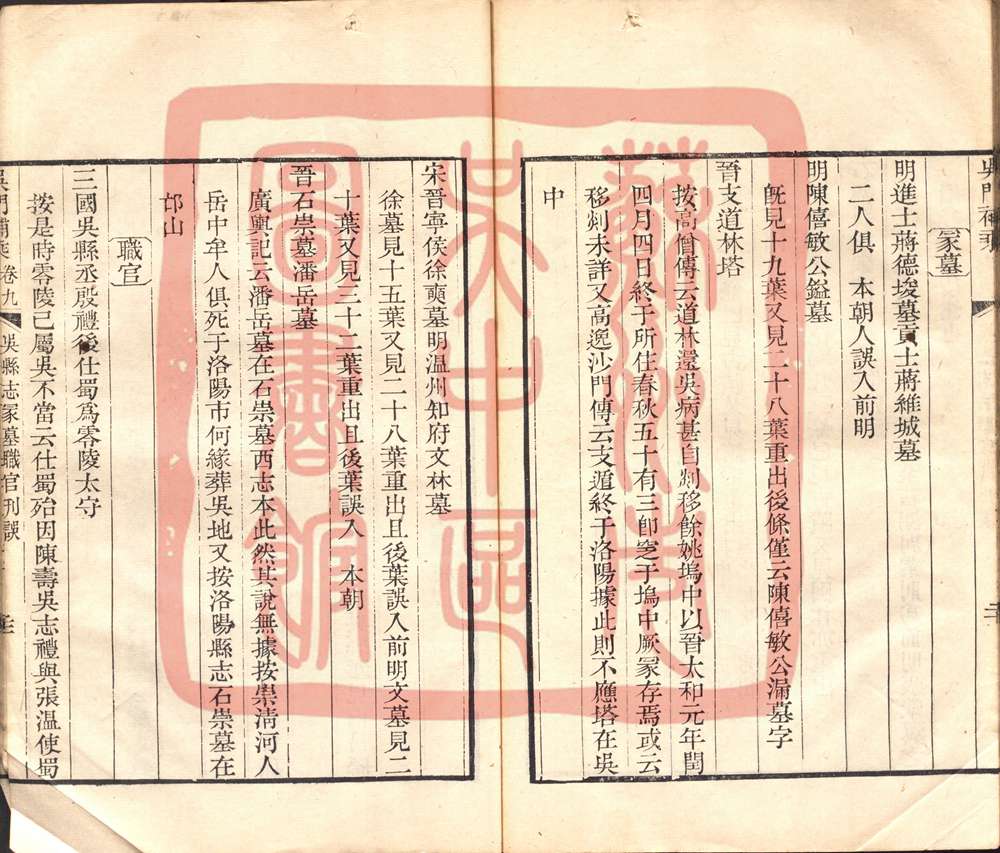 吳門補乘
冢墓
明進士蔣德埈墓貢士蔣維城墓
二人俱　本朝人誤入前明
明陳僖敏公鎰墓
既見十九葉又見二十八葉重出後條僅云陳僖敏公漏墓字
晉支道林塔
按高僧傳云道林還吳病甚自剡移餘姚塢中以晉太和元年閏
四月四日終于所住春秋五十有三卽窆于塢中厥冢存焉或云
移剡未詳又高逸沙門傳云支遁終于洛陽據此則不應塔在吳
中
宋晉寧侯徐奭墓明温州知府文林墓
徐墓見十五葉又見二十八葉重出且後葉誤入前明文墓見二
十葉又見三十二葉重出且後葉誤入　本朝
晉石崇墓潘岳墓
廣輿記云潘岳墓在石崇墓西志本此然其說無據按崇淸河人
岳中牟人俱死于洛陽市何緣葬吳地又按洛陽縣志石崇墓在
邙山
職官
三國吳縣丞殷禮後仕蜀爲零陵太守
按是時零陵已屬吳不當云仕蜀殆因陳壽吳志禮與張溫使蜀
吳門補乘卷九　吳縣志冢墓職官刊誤
蘇州市吳中區圖書館